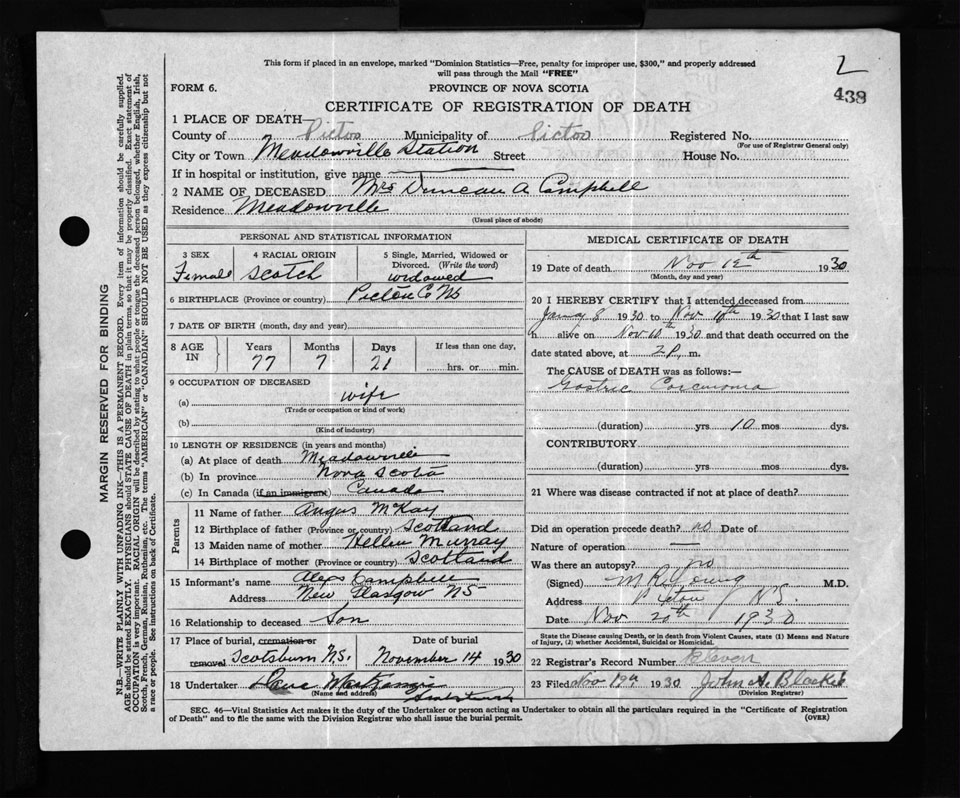 This form if placed in an envelope, marked "Dominion Statistics—Free, penalty for improper use, $300," and properly addressed
will pass through the Mail "FREE"
2
438
FORM 6.
PROVINCE OF NOVA SCOTIA
CERTIFICATE OF REGISTRATION OF DEATH
1 PLACE OF DEATH—
County of Pictou Municipality of Pictou Registered No.
(For use of Registrar General only)
City or Town Meadowville Station Street House No.
If in hospital or institution, give name
2 NAME OF DECEASED Mrs Duncan A Campbell
Residence Meadowville
(Usual place of abode)
PERSONAL AND STATISTICAL INFORMATION
3 SEX
Female
4 RACIAL ORIGIN
Scotch
5 Single, Married, Widowed or
Divorced. (Write the word)
widowed
6 BIRTHPLACE (Province or country) Pictou Co NS
7 DATE OF BIRTH (month, day and year)
8 AGE IN
Years Months Days If less than one day,
77 7 21 hrs. or min.
9 OCCUPATION OF DECEASED
(a) wife
(Trade or occupation or kind of work)
(b)
(Kind of industry)
10 LENGTH OF RESIDENCE (in years and months)
(a) At place of death Meadowville
(b) In province Nova Scotia
(c) In Canada (if an immigrant) Canada
Parents
11 Name of father Angus McKay
12 Birthplace of father (Province or country) Scotland
13 Maiden name of mother Hellen Murray
14 Birthplace of mother (Province or country) Scotland
15 Informant's name Alex Campbell
Address New Glasgow NS
16 Relationship to deceased Son
17 Place of burial, cremation or Date of burial
removal Scotsburn N.S. November 14 1930
18 Undertaker
(Name and address)
MEDICAL CERTIFICATE OF DEATH
19 Date of death Nov 12th 1930
(Month, day and year)
20 I HEREBY CERTIFY that I attended deceased from
8 1930 to Nov 10th 1930 that I last saw
h alive on Nov 10th 1930 and that death occurred on the
date stated above, at 2 P. m.
The CAUSE of DEATH was as follows:—
Gastric Carcinoma
(duration) yrs 10 mos dys.
CONTRIBUTORY
(duration) yrs. mos. dys.
21 Where was disease contracted if not at place of death?
Did an operation precede death? no Date of
Nature of operation —
Was there an autopsy? no
(Signed) M R Young M.D.
Address Pictou N.S.
Date Nov 20th 1930
State the Disease causing Death, or in death from Violent Causes, state (1) Means and Nature
of Injury, (2) whether Accidental, Suicidal or Homicidal.
22 Registrar's Record Number Eleven
23 Filed Nov 19th 1930 John A.
(Division Registrar)
SEC. 46—Vital Statistics Act makes it the duty of the Undertaker or person acting as Undertaker to obtain all the particulars required in the "Certificate of Registration
of Death" and to file the same with the Division Registrar who shall issue the burial permit.
(OVER)
MARGIN RESERVED FOR BINDING
N.B.—WRITE PLAINLY WITH UNFADING INK—THIS IS A PERMANENT RECORD. Every item of information should be carefully supplied.
AGE should be stated EXACTLY. PHYSICIANS should STATE CAUSE OF DEATH in plain terms, so that it may be properly classified. Exact statement of
OCCUPATION is very important. RACIAL ORIGIN will be described by stating to what people or tongue the deceased person belonged, whether English, Irish,
Scotch, French, German, Russian, Ruthenian, etc. The terms "AMERICAN" or "CANADIAN" SHOULD NOT BE USED as they express citizenship but not
a race or people. See instructions on back of Certificate.